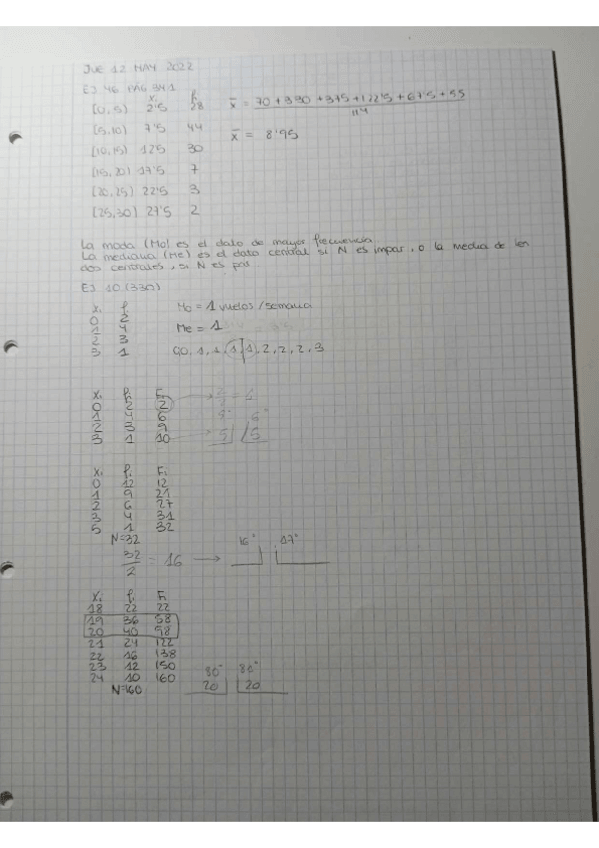 JUE 12 MAY 2022
EJ 46 PÁG 341
xᵢ fᵢ
[0, 5) 2'5 28 x̄ = 70 + 330 + 375 + 122'5 + 67'5 + 55
114
[5,10) 7'5 44 x̄ = 8'95
[10,15) 12'5 30
[15, 20) 17'5 7
[20,25) 22'5 3
[25,30) 27'5 2
La moda (Mo) es el dato de mayor frecuencia
La mediana (Me) es el dato central si N es impar, o la media de los
dos centrales, si N es par
EJ 10 (330)
xᵢ fᵢ Mo = 1 vuelos / semana
0 2
1 4 Me = 1
2 3
3 1 0, 1, 1, 1, 1, 2, 2, 2, 3
xᵢ fᵢ Fᵢ
0 2 2
1 4 6 5° 6°
2 3 9
3 1 10 5 5
xᵢ fᵢ Fᵢ
0 12 12
1 9 21
2 6 27
3 4 31
5 1 32
N=32 16° 17°
32
2 = 16 →
xᵢ fᵢ Fᵢ
18 22 22
19 36 58
20 40 98
21 24 122
22 16 138
23 12 150 80°
24 10 160 20 20
N=160